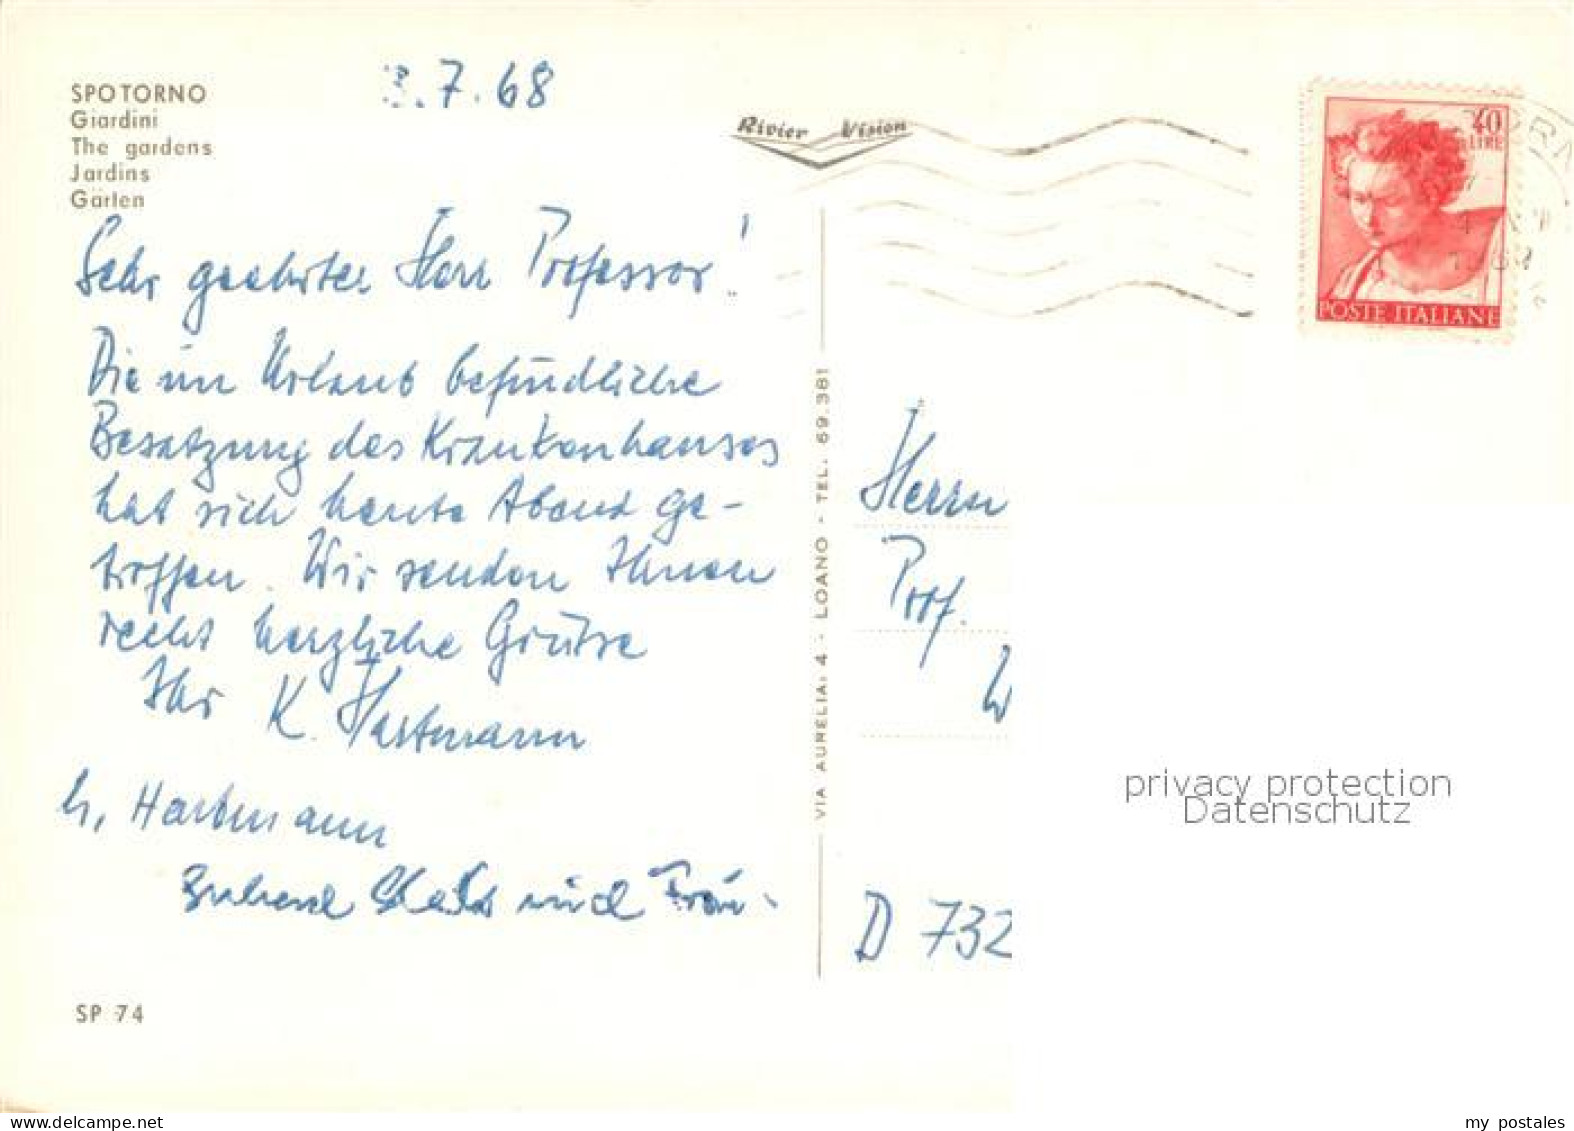 SPOTORNO
Giardini
The gardens
Jardins
Gärten
3.7.68
Rivier Vision
40
LIRE
POSTE ITALIANE
Sehr geehrter Herr Professor!
Die im Urlaub befindliche
Besatzung des Krankenhauses
hat sich heute Abend ge-
troffen. Wir senden Ihnen
recht herzliche Grüsse
Ihr K. Hartmann
h. Hartmann
und Frau
VIA AURELIA, 4 - LOANO - TEL. 69.381
Herrn
Prof.
W
D 732
privacy protection
Datenschutz
SP 74
my postales